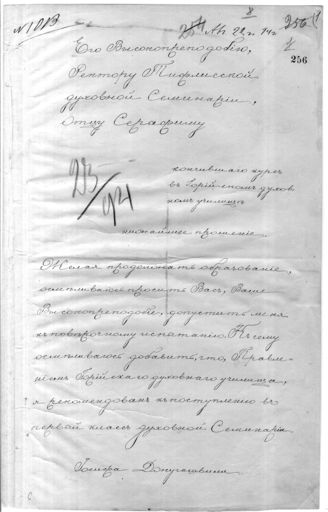 №1013
8
254 256
2
256
Его Высокопреподобію,
Ректору Тифлисской
духовной Семинаріи,
Отцу Серафиму
293/94
кончившаго курсъ
въ Горійскомъ духов
номъ училищѣ
нижайшее прошеніе.
Желая продолжать образованіе,
осмѣливаюсь просить Васъ, Ваше
Высокопреподобіе, допустить меня
къ повѣрочному испытанію. Къ сему
осмѣливаюсь добавить, что, Правле-
ніемъ Горійскаго духовнаго училища,
я рекомендованъ къ поступленію въ
первой классъ духовной Семинаріи.